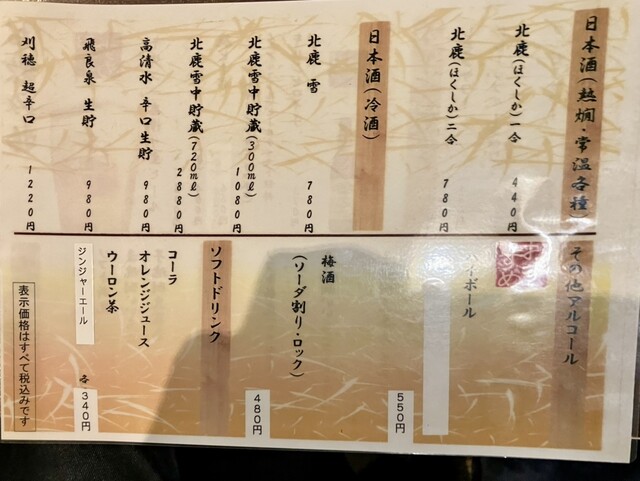 日本酒(熱燗・常温各種)
北鹿(ほくしか)一合 440円
北鹿(ほくしか)二合 780円
日本酒(冷酒)
北鹿 雪 780円
北鹿雪中貯蔵(300ml) 1080円
北鹿雪中貯蔵(720ml) 2880円
高清水 辛口生貯 980円
飛良泉 生貯 980円
刈穂 超辛口 1220円
その他アルコール
イボール
550円
梅酒
(ソーダ割り・ロック)
480円
ソフトドリンク
コーラ
オレンジジュース
ウーロン茶
ジンジャーエール
各 340円
表示価格はすべて税込みです